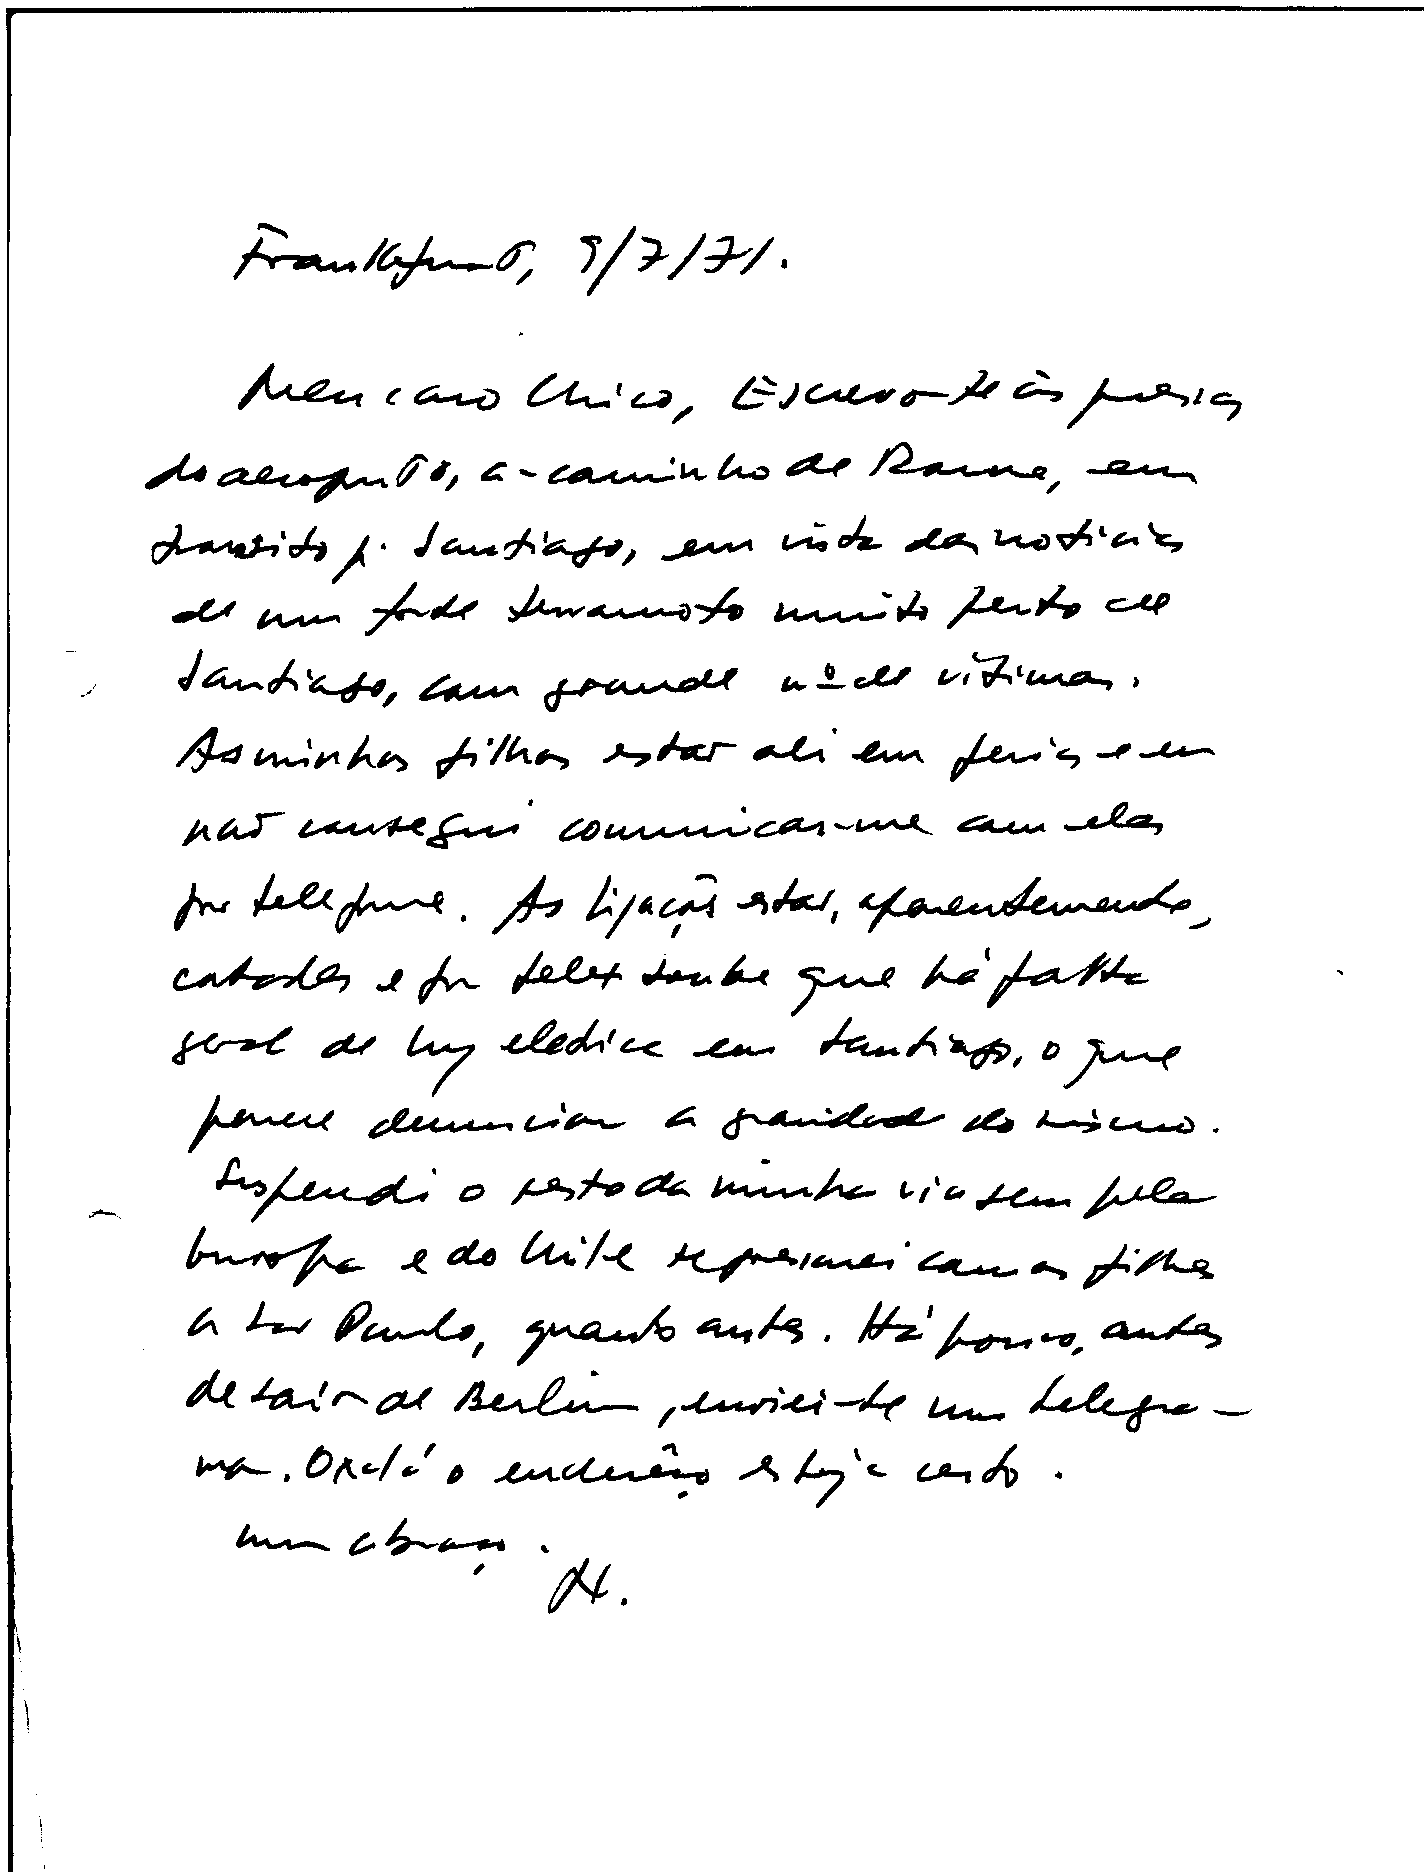 Frankfurt, 9/7/71.
Meu caro Chico, Escrevo-te às pressas
do aeroporto, a-caminho de Roma, em
transito p. Santiago, em vista das noticias
de um forte terramoto muito perto de
Santiago, com grande nº de vítimas.
As minhas filhas estão ali em ferias e eu
não consegui comunicar-me com elas
por telefone. As ligações estão, aparentemente,
cortadas e por telex soube que há falta
geral de luz eletrica em Santiago, o que
parece denunciar a gravidade do sismo.
Suspendi o resto da minha viagem pela
Europa e do Chile regressarei com as filhas
a São Paulo, quanto antes. Há pouco, antes
de sair de Berlim, enviei-te um telegra-
ma. Oxalá o enderêço esteja certo.
um abraço.